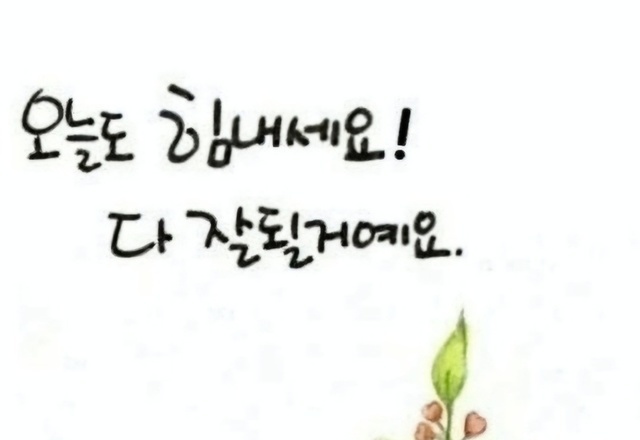 오늘도 힘내세요!
다 잘될거예요.